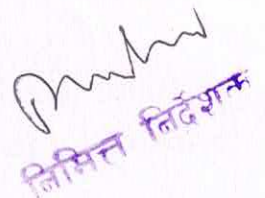 निमित्त निर्देशक